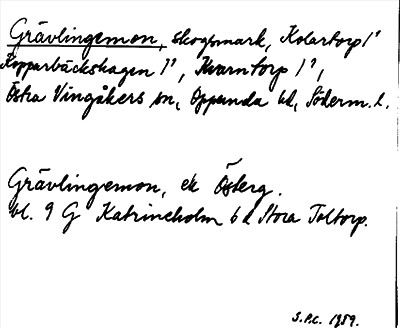 Grävlingemon, skogsmark, Kolartorp 1?
Kopparbäckshagen 1?, Kvarntorp 1?,
Östra Vingåkers sn, Oppunda hd, Söderm. l.
Grävlingemon, ek Österg.
bl. 9 G Katrineholm 6 d Stora Toltorp.
S.P.C. 1959.